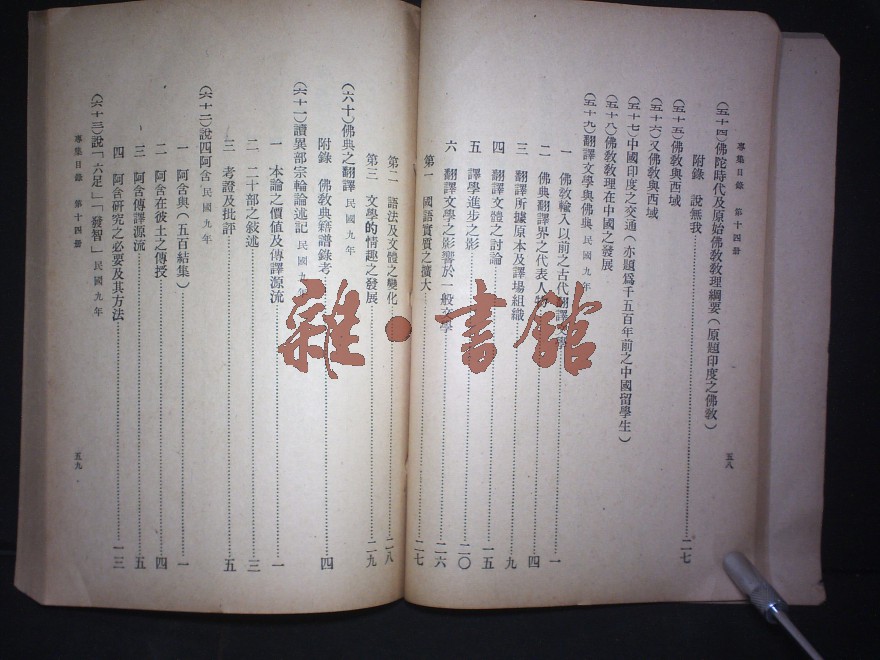 專集目錄 第十四册 五八
(五十四)佛陀時代及原始佛敎敎理綱要(原題印度之佛敎)
附錄 說無我……二七
(五十五)佛敎與西域
(五十六)又佛敎與西域
(五十七)中國印度之交通(亦題爲千五百年前之中國留學生)
(五十八)佛敎敎理在中國之發展
(五十九)翻譯文學與佛典 民國九年
一 佛敎輸入以前之古代翻譯文學……一
二 佛典翻譯界之代表人物……四
三 翻譯所據原本及譯場組織……九
四 翻譯文體之討論……一五
五 譯學進步之影……二〇
六 翻譯文學之影響於一般文學……二六
第一 國語實質之擴大……二七
第二 語法及文體之變化……二八
第三 文學的情趣之發展……二九
(六十)佛典之翻譯 民國九年
附錄 佛敎典籍譜錄考……四
(六十一)讀異部宗輪論述記 民國九年
一 本論之價値及傳譯源流……一
二 二十部之敘述……三
三 考證及批評……五
(六十二)說四阿含 民國九年
一 阿含與(五百結集)……一
二 阿含在彼土之傳授……四
三 阿含傳譯源流……五
四 阿含研究之必要及其方法……一三
(六十三)說「六足」「發智」 民國九年
專集目錄 第十四册 五九
雜·書館